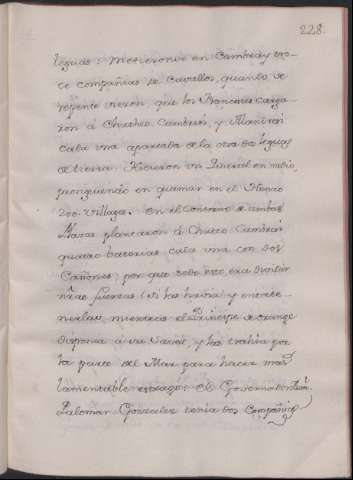 228.
leguas: metieronse en Cambray on-
ce compañias de Cavallos, quando de
repente vieron, que los Franceses carga-
ron á Chateo Cambresi, y
cada una apartada de la otra dos leguas
de tierra. Hicieron un en medio,
prosiguiendo en quemar en el
200. Villages. en el Contorno de ambas
Plazas plantaron á Chateo Cambresi
quatro baterias cada una con dos
Cañones; por que todo esto era divertir
nras fuerzas (si las havia) y entrete-
nerlas, mientras el Principe de orange
disponia á su salvo, y las trahia por
la parte del Mar para hacer mas
lamentable estrago: el Governador Juan
Palomar Gonzalez tenia dos Compañias